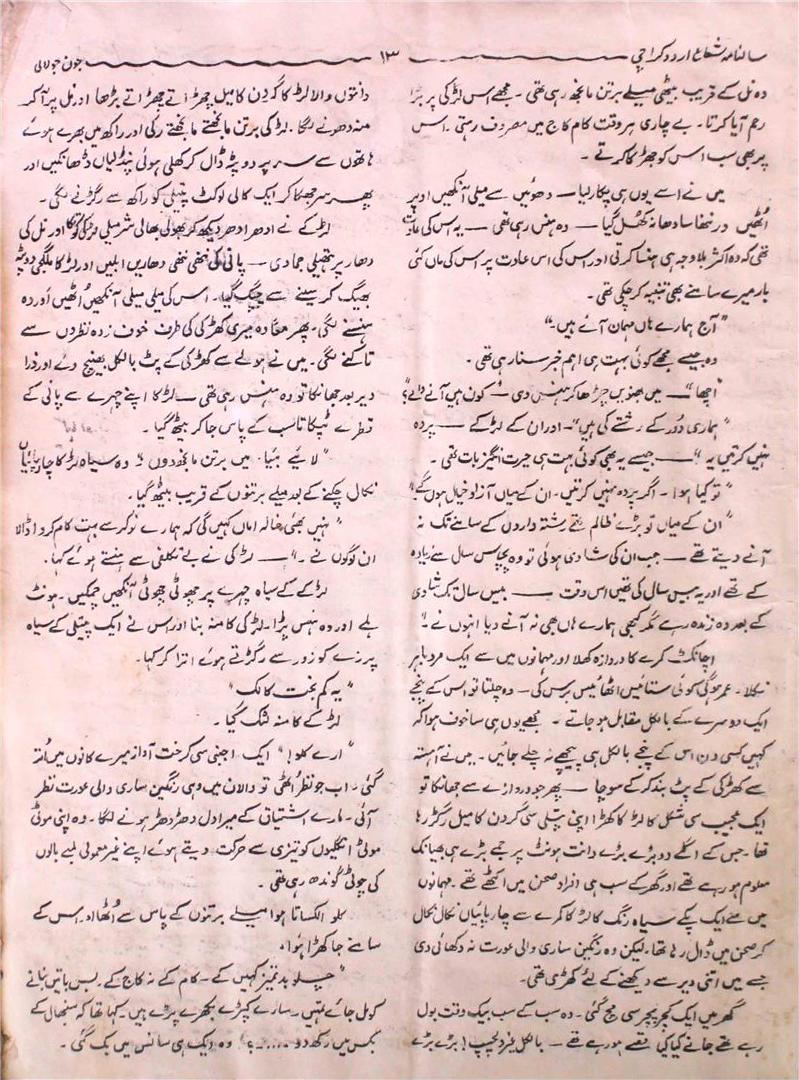 سالنامہ شعاع اردو کراچی
۱۳
جون جولائی
وہ نل کے قریب بیٹھی میلے برتن مانجھ رہی تھی۔ مجھے اس لڑکی پر بڑا
رحم آیا کرتا۔ بے چاری ہر وقت کام کاج میں مصروف رہتی۔ اس
پر بھی سب اس کو جھڑکا کرتے۔
میں نے اسے یوں ہی پکار لیا — دھوئیں سے میلی آنکھیں اوپر
اُٹھیں اور ننھا سا دھانہ کھُل گیا — وہ ہنس رہی تھی — یہ اس کی عادت
تھی کہ وہ اکثر بلاوجہ ہی ہنسا کرتی اور اس کی اس عادت پر اس کی ماں کئی
بار میرے سامنے بھی تنبیہ کر چکی تھی۔
"آج ہمارے ہاں مہمان آئے ہیں۔"
وہ جیسے مجھے کوئی بہت ہی اہم خبر سنا رہی تھی۔
"اچھا" — میں بھنویں چڑھا کر ہنس دی — "کون ہیں آنے والے؟"
"ہماری دُور کے رشتے کی ہیں" — اور ان کے لڑکے — پردہ
نہیں کرتیں یہ!" — جیسے یہ بھی کوئی بہت ہی حیرت انگیز بات تھی۔
"تو کیا ہوا۔ اگر پردہ نہیں کرتیں۔ ان کے میاں آزاد خیال ہوں گے!"
"ان کے میاں تو بڑے ظالم تھے رشتہ داروں کے سامنے تک نہ
آنے دیتے تھے — جب ان کی شادی ہوئی تو وہ پچاس سال سے زیادہ
کے تھے اور یہ بیس سال کی تھیں اس وقت — بیس سال تک شادی
کے بعد وہ زندہ رہے مگر کبھی ہمارے ہاں بھی نہ آنے دیا انہوں نے۔"
اچانک کمرے کا دروازہ کھلا اور مہمانوں میں سے ایک مرد باہر
نکلا۔ عمر ہوگی کوئی ستائیس اٹھائیس برس کی — وہ چلتا تو اس کے پنجے
ایک دوسرے کے بالکل مقابل ہو جاتے۔ مجھے یوں ہی سا خوف ہوا کہ
کہیں کسی دن اس کے پنجے بالکل ہی پیچھے نہ چلے جائیں۔ میں نے آہستہ
سے کھڑکی کے پٹ بند کر کے سوچا — پھر جو دروازے سے جھانکا تو
ایک عجیب سی شکل کا لڑکا کھڑا اپنی پتلی سی گردن کا میل رگڑ رہا
تھا۔ جس کے اگلے دو بڑے بڑے دانت ہونٹ پر جمے بڑے ہی بھیانک
معلوم ہو رہے تھے اور گھر کے سب ہی افراد صحن میں اکٹھے تھے۔ مہمانوں
میں سے ایک پکے سیاہ رنگ کا لڑکا کمرے سے چارپائیاں نکال نکال
کر صحن میں ڈال رہا تھا۔ لیکن وہ رنگین ساری والی عورت نہ دکھائی دی
جسے میں اتنی دیر سے دیکھنے کے لئے کھڑی تھی۔
گھر میں ایک کچر پچر سی مچ گئی۔ وہ سب کے سب بیک وقت بول
رہے تھے جانے کیا کیا قصے ہو رہے تھے — بالکل غیر دلچسپ! بڑے بڑے
دانتوں والا لڑکا گردن کا میل چھڑاتے چھڑاتے بڑھا اور نل پر آ کر
منہ دھونے لگا۔ لڑکی برتن مانجھتے مانجھتے رکی اور راکھ میں بھرے ہوئے
ہاتھوں سے سر پر دوپٹہ ڈال کر کھلی ہوئی پنڈلیاں ڈھانکیں اور
پھر سر جھکا کر ایک کالی پتیلی کو راکھ سے رگڑنے لگی۔
لڑکے نے ادھر ادھر دیکھ کر بھولی بھالی شرمیلی لڑکی کو تکا اور نل کی
دھار پر ہتھیلی جما دی — پانی کی ننھی ننھی دھاریں ابلیں اور لڑکی کا ملگجی دوپٹہ
بھیگ کر سینے سے چپک گیا۔ اس کی میلی میلی آنکھیں اُٹھیں اور وہ
ہنسنے لگی۔ پھر معاً وہ میری کھڑکی کی طرف خوف زدہ نظروں سے
تاکنے لگی۔ میں نے ہولے سے کھڑکی کے پٹ بالکل بھینچ دئے اور ذرا
دیر بعد جھانکا تو وہ ہنس رہی تھی — لڑکا اپنے چہرے سے پانی کے
قطرے ٹپکاتا سب کے پاس جا کر بیٹھ گیا۔
"لائیے بیٹا۔ میں برتن مانجھ دوں" وہ سیاہ لڑکا چارپائیاں
نکال چکنے کے بعد میلے برتنوں کے قریب بیٹھ گیا۔
"نہیں بھئی خالہ اماں کہیں گی کہ ہمارے نوکر سے بہت کام کروا ڈالا
ان لوگوں نے۔" — لڑکی نے بے تکلفی سے ہنستے ہوئے کہا۔
لڑکے کے سیاہ چہرے پر چھوٹی چھوٹی آنکھیں چمکیں۔ ہونٹ
ہلے اور وہ ہنس پڑا۔ لڑکی کا منہ بنا اور اس نے ایک پتیلی کے سیاہ
پرزے کو زور سے رگڑتے ہوئے اترا کر کہا۔
"یہ کم بخت کالک"
لڑکے کا منہ لٹک گیا۔
"ارے کلو!" ایک اجنبی سی کرخت آواز میرے کانوں میں اُتر
گئی۔ اب جو نظر اُٹھی تو دالان میں وہی رنگین ساری والی عورت نظر
آئی۔ مارے اشتیاق کے میرا دل دھڑ دھڑ ہونے لگا۔ وہ اپنی موٹی
موٹی انگلیوں کو تیزی سے حرکت دیتے ہوئے اپنے غیر معمولی لمبے بالوں
کی چوٹی گوندھ رہی تھی۔
کلو الکساتا ہوا میلے برتنوں کے پاس سے اُٹھا اور اس کے
سامنے جا کھڑا ہوا۔
"چلو بدتمیز کہیں کے۔ کام کے نہ کاج کے۔ بس باتیں بنانے
کو مل جائے تمہیں۔ سارے کپڑے بکھرے پڑے ہیں۔ کہا تھا کہ سنبھال کے
بکس میں رکھ دو .....؟" وہ ایک ہی سانس میں بک گئی۔